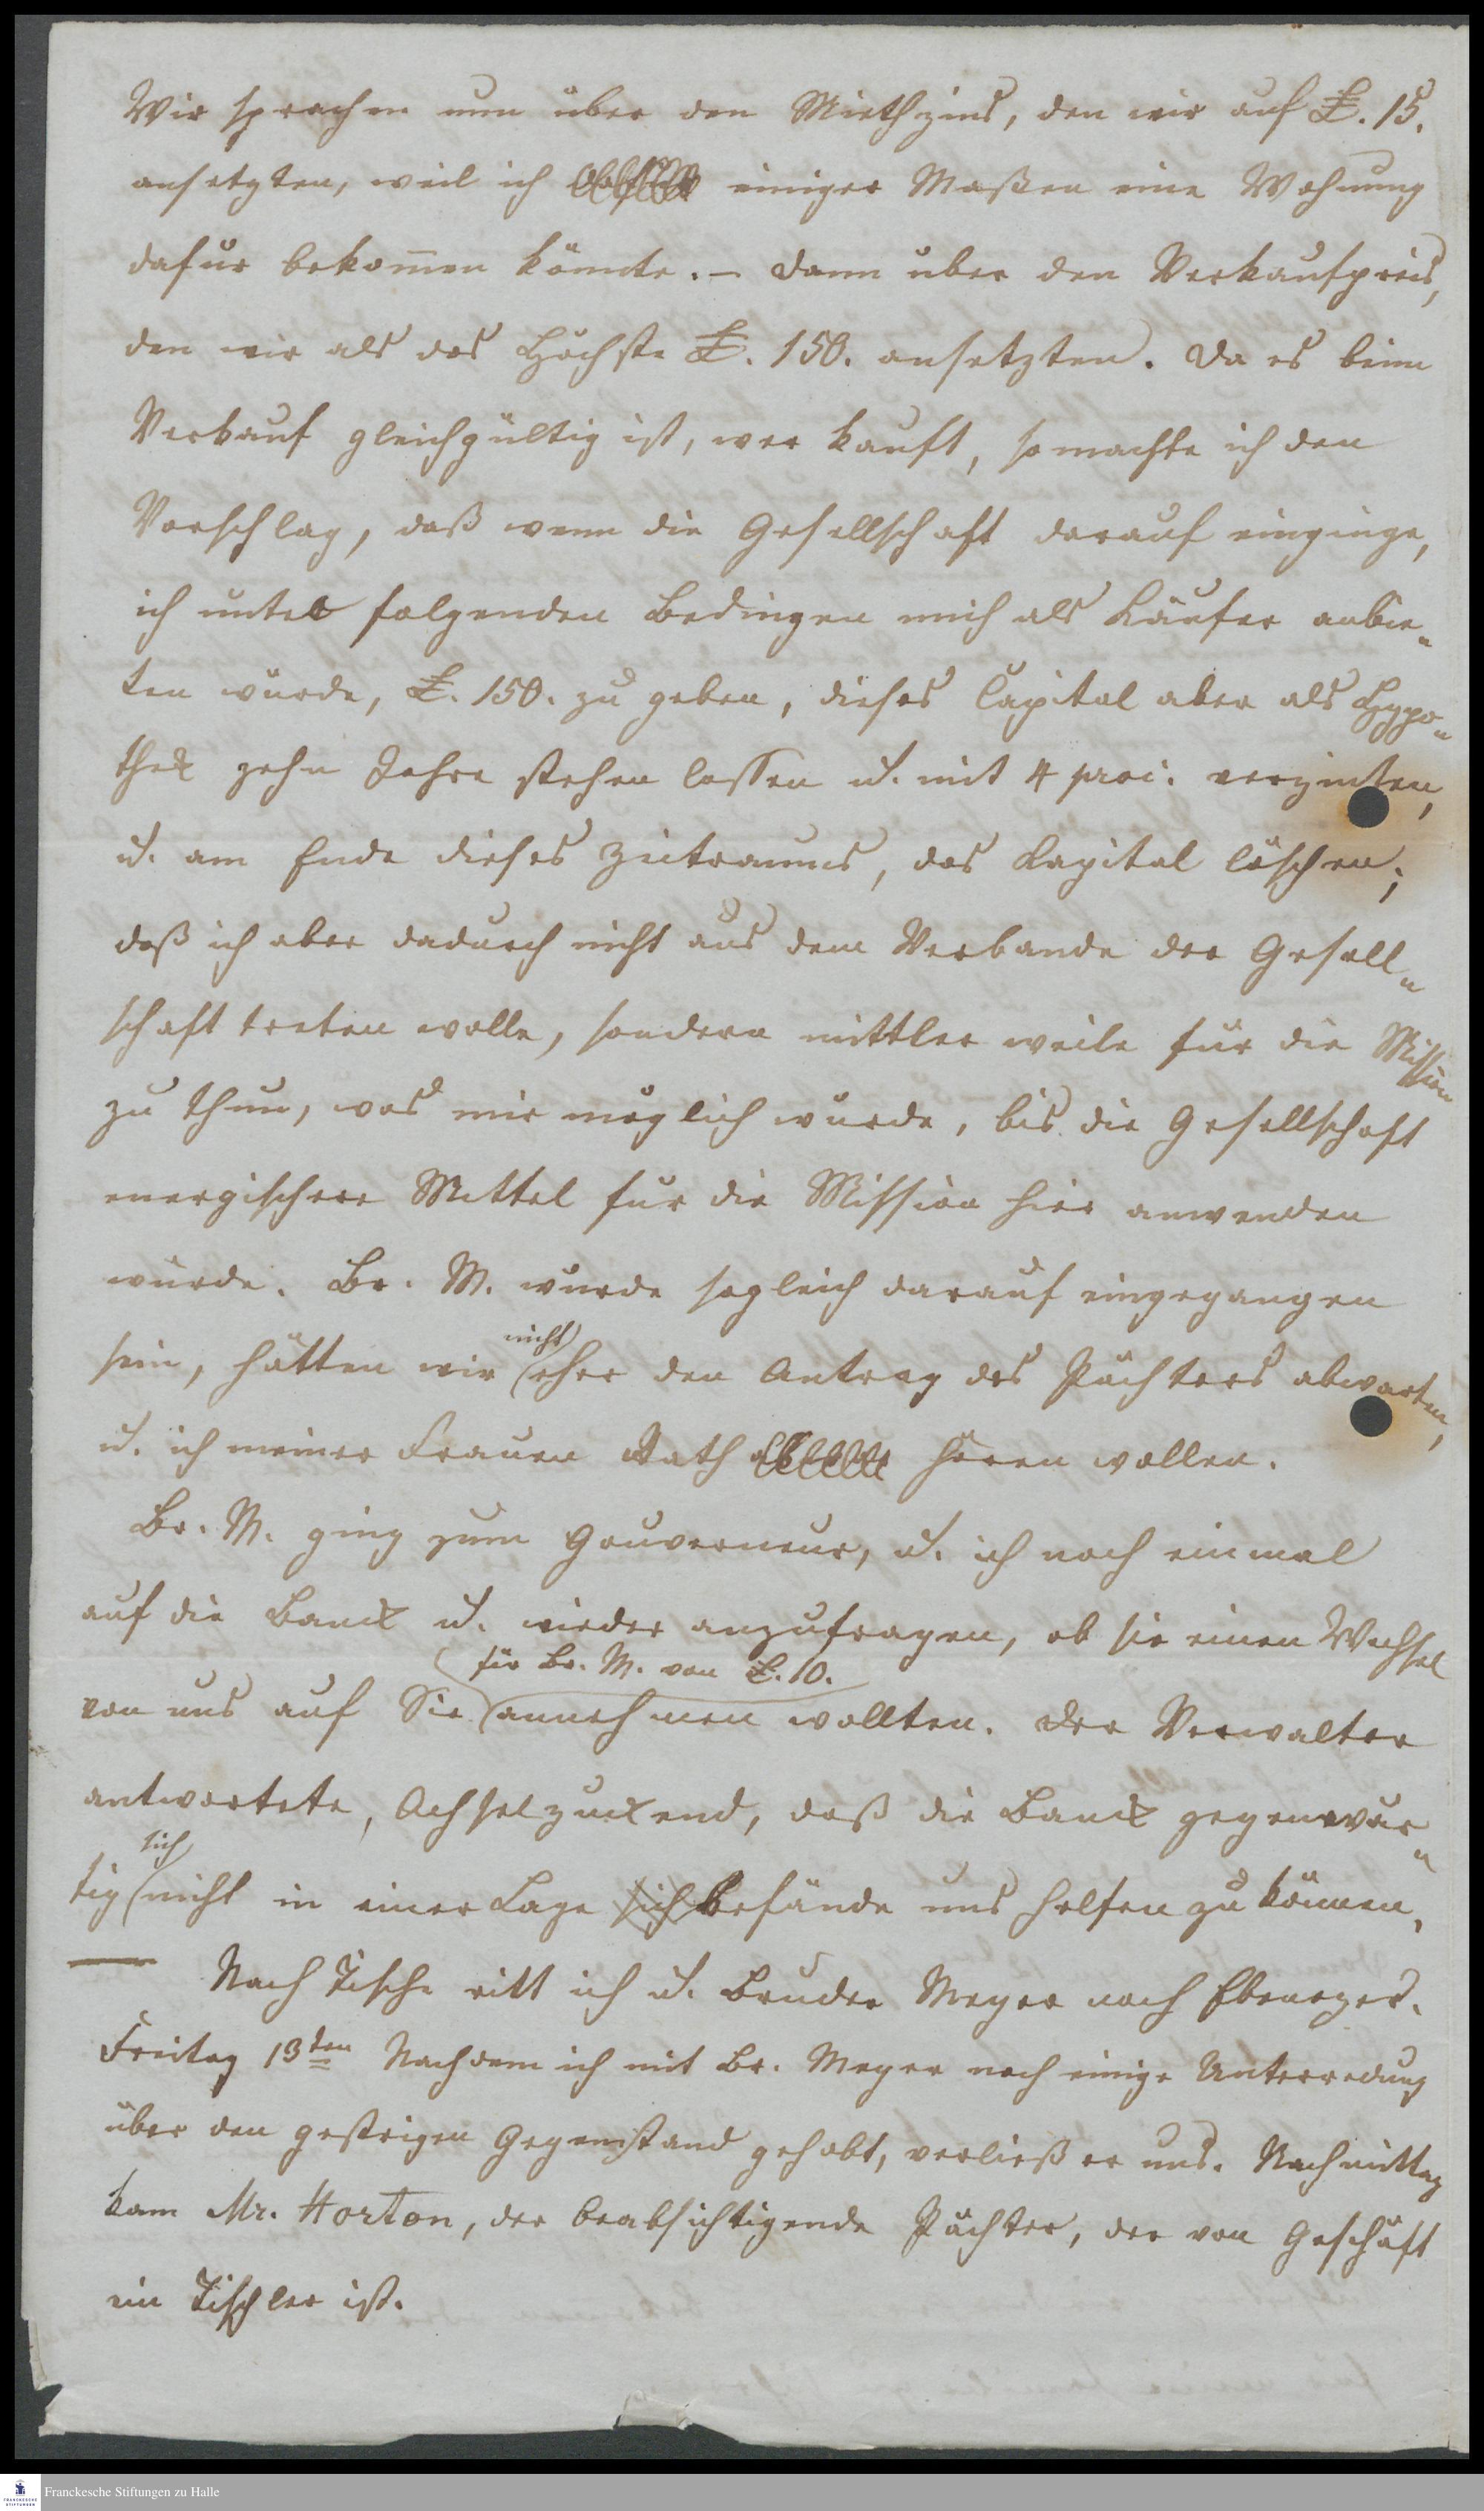 Wir sprachen nun über den Miethzins, den wir auf £. 15.
ansetzten, weil ich einiger Maßen eine Wohnung
dafür bekom̄en könnte. – Dann über den Verkaufpreis,
den wir als das Höchste £. 150. ansetzten. Da es beim
Verkauf gleichgültig ist, wer kauft, so machte ich den
Vorschlag, daß wenn die Gesellschaft darauf einginge,
ich unter folgenden Bedingen mich als Käufer anbie-
ten würde, £. 150. zu geben, dieses Capital aber als Hypo-
thek zehn Jahre stehen lassen u. mit 4 proc. verzinsen,
u. am Ende dieses Zeitraums, das Kapital löschen;
daß ich aber dadurch nicht aus dem Verbande der Gesell-
schaft treten wolle, sondern mittler weile für die Mission
zu thun, was mir möglich würde, bis die Gesellschaft
energischere Mittel für die Mission hier anwenden
würde. Br. M. würde sogleich darauf eingegangen
sein, hätten wir nicht eher den Antrag des Pächters abwarten,
u. ich meiner Frauen Rath hören wollen.
Br. M. ging zum Gouverneur, u. ich noch einmal
auf die Banck u. wieder anzufragen, ob sie einen Wechsel
für Br. M. von £. 10.
von uns auf Sie annehmen wollten. Der Verwalter
antwortete, Achselzuckend, daß die Banck gegenwär-
tig sich nicht in einer Lage sich befände uns helfen zu können,
— Nach Tische ritt ich u. Bruder Meyer nach Ebenezer.
Freitag 13ten Nachdem ich mit Br. Meyer noch einige Unterredung
über den gestrigen Gegenstand gehabt, verließ er uns. Nachmittag
kam Mr. Horton, der beabsichtigende Pächter, der von Geschäft
ein Tischler ist.
Franckesche Stiftungen zu Halle